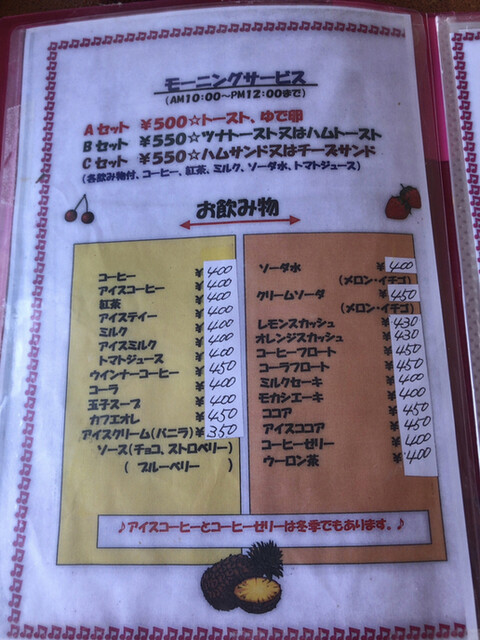 モーニングサービス
(AM10:00～PM12:00まで)
Aセット ￥500☆トースト、ゆで卵
Bセット ￥550☆ツナトースト又はハムトースト
Cセット ￥550☆ハムサンド又はチーズサンド
(各飲み物付、コーヒー、紅茶、ミルク、ソーダ水、トマトジュース)
お飲み物
コーヒー ￥400
アイスコーヒー ￥400
紅茶 ￥400
アイスティー ￥400
ミルク ￥400
アイスミルク ￥400
トマトジュース ￥400
ウインナーコーヒー ￥450
コーラ ￥400
玉子スープ ￥400
カフェオレ ￥450
アイスクリーム(バニラ) ￥350
ソース(チョコ、ストロベリー)
( ブルーベリー )
ソーダ水 ￥400
(メロン・イチゴ)
クリームソーダ ￥450
(メロン・イチゴ)
レモンスカッシュ ￥430
オレンジスカッシュ ￥430
コーヒーフロート ￥450
コーラフロート ￥450
ミルクセーキ ￥400
モカシェーキ ￥400
ココア ￥450
アイスココア ￥450
コーヒーゼリー ￥400
ウーロン茶 ￥400
♪アイスコーヒーとコーヒーゼリーは冬季でもあります。♪